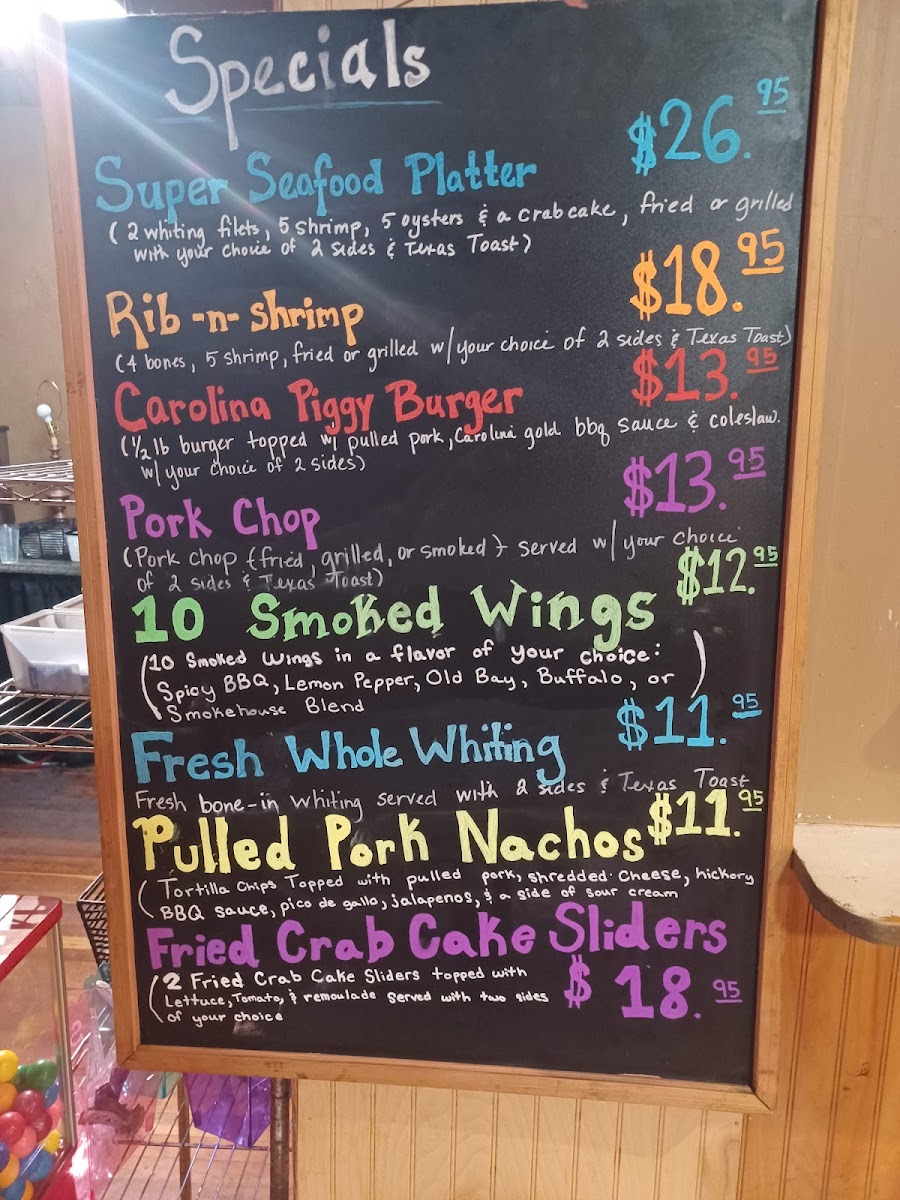 Specials
Super Seafood Platter $26.95
(2 whiting filets, 5 shrimp, 5 oysters & a crab cake, fried or grilled
with your choice of 2 sides & Texas Toast)
Rib -n- Shrimp $18.95
(4 bones, 5 shrimp, fried or grilled w/your choice of 2 sides & Texas Toast)
Carolina Piggy Burger $13.95
(1/2 lb burger topped w/ pulled pork, Carolina gold bbq sauce & coleslaw.
w/your choice of 2 sides)
Pork Chop $13.95
(Pork chop {fried, grilled, or smoked} served w/your choice
of 2 sides & Texas Toast)
10 Smoked Wings $12.95
(10 Smoked Wings in a flavor of your choice:
Spicy BBQ, Lemon Pepper, Old Bay, Buffalo, or
Smokehouse Blend)
Fresh Whole Whiting $11.95
Fresh bone-in whiting served with 2 sides & Texas Toast
Pulled Pork Nachos $11.95
(Tortilla Chips Topped with pulled pork, shredded cheese, hickory
BBQ sauce, pico de gallo, jalapenos, & a side of sour cream
Fried Crab Cake Sliders
(2 Fried Crab Cake Sliders topped with
Lettuce, Tomato, & remoulade Served with two sides
of your choice
$18.95